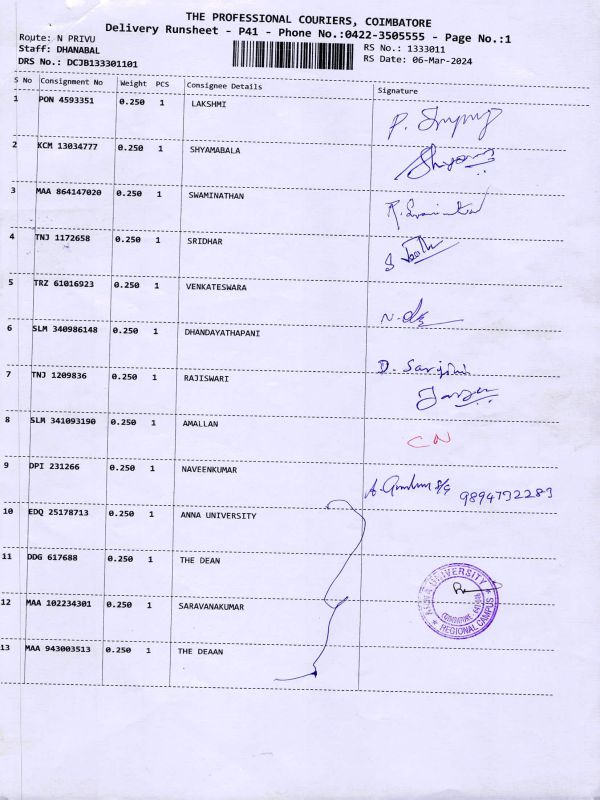 THE PROFESSIONAL COURIERS, COIMBATORE
Delivery Runsheet - P41 - Phone No.:0422-3505555 - Page No.:1
Route: N PRIVU
Staff: DHANABAL
DRS No.: DCJB133301101
RS No.: 1333011
RS Date: 06-Mar-2024
S No Consignment No Weight PCS Consignee Details Signature
1 PON 4593351 0.250 1 LAKSHMI
2 KCM 13034777 0.250 1 SHYAMABALA
3 MAA 864147020 0.250 1 SWAMINATHAN
4 TNJ 1172658 0.250 1 SRIDHAR
5 TRZ 61016923 0.250 1 VENKATESWARA
6 SLM 340986148 0.250 1 DHANDAYATHAPANI
7 TNJ 1209836 0.250 1 RAJISWARI
8 SLM 341093190 0.250 1 AMALLAN CN
9 DPI 231266 0.250 1 NAVEENKUMAR 9894732283
10 EDQ 25178713 0.250 1 ANNA UNIVERSITY
11 DDG 617688 0.250 1 THE DEAN
12 MAA 102234301 0.250 1 SARAVANAKUMAR
13 MAA 943003513 0.250 1 THE DEAAN
ANNA UNIVERSITY
REGIONAL CAMPUS